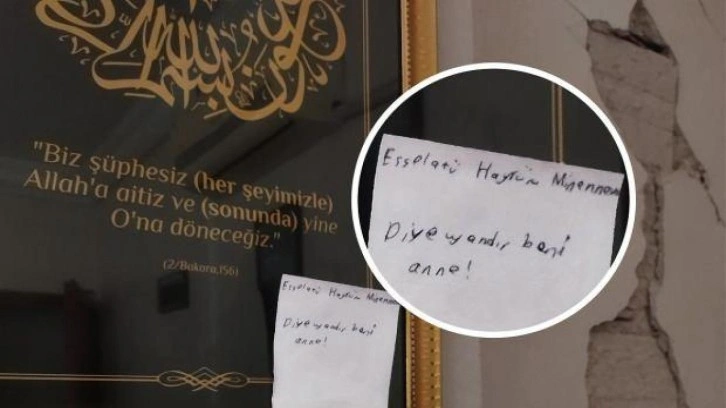 "Biz şüphesiz (her şeyimizle)
Allah'a aitiz ve (sonunda) yine
O'na döneceğiz."
(2/Bakara,156)
Esselatü Hayrün Minennevm
Diye uyandır beni
anne!
Esselatü Hayrün Minennevm
Diye uyandır beni
anne!